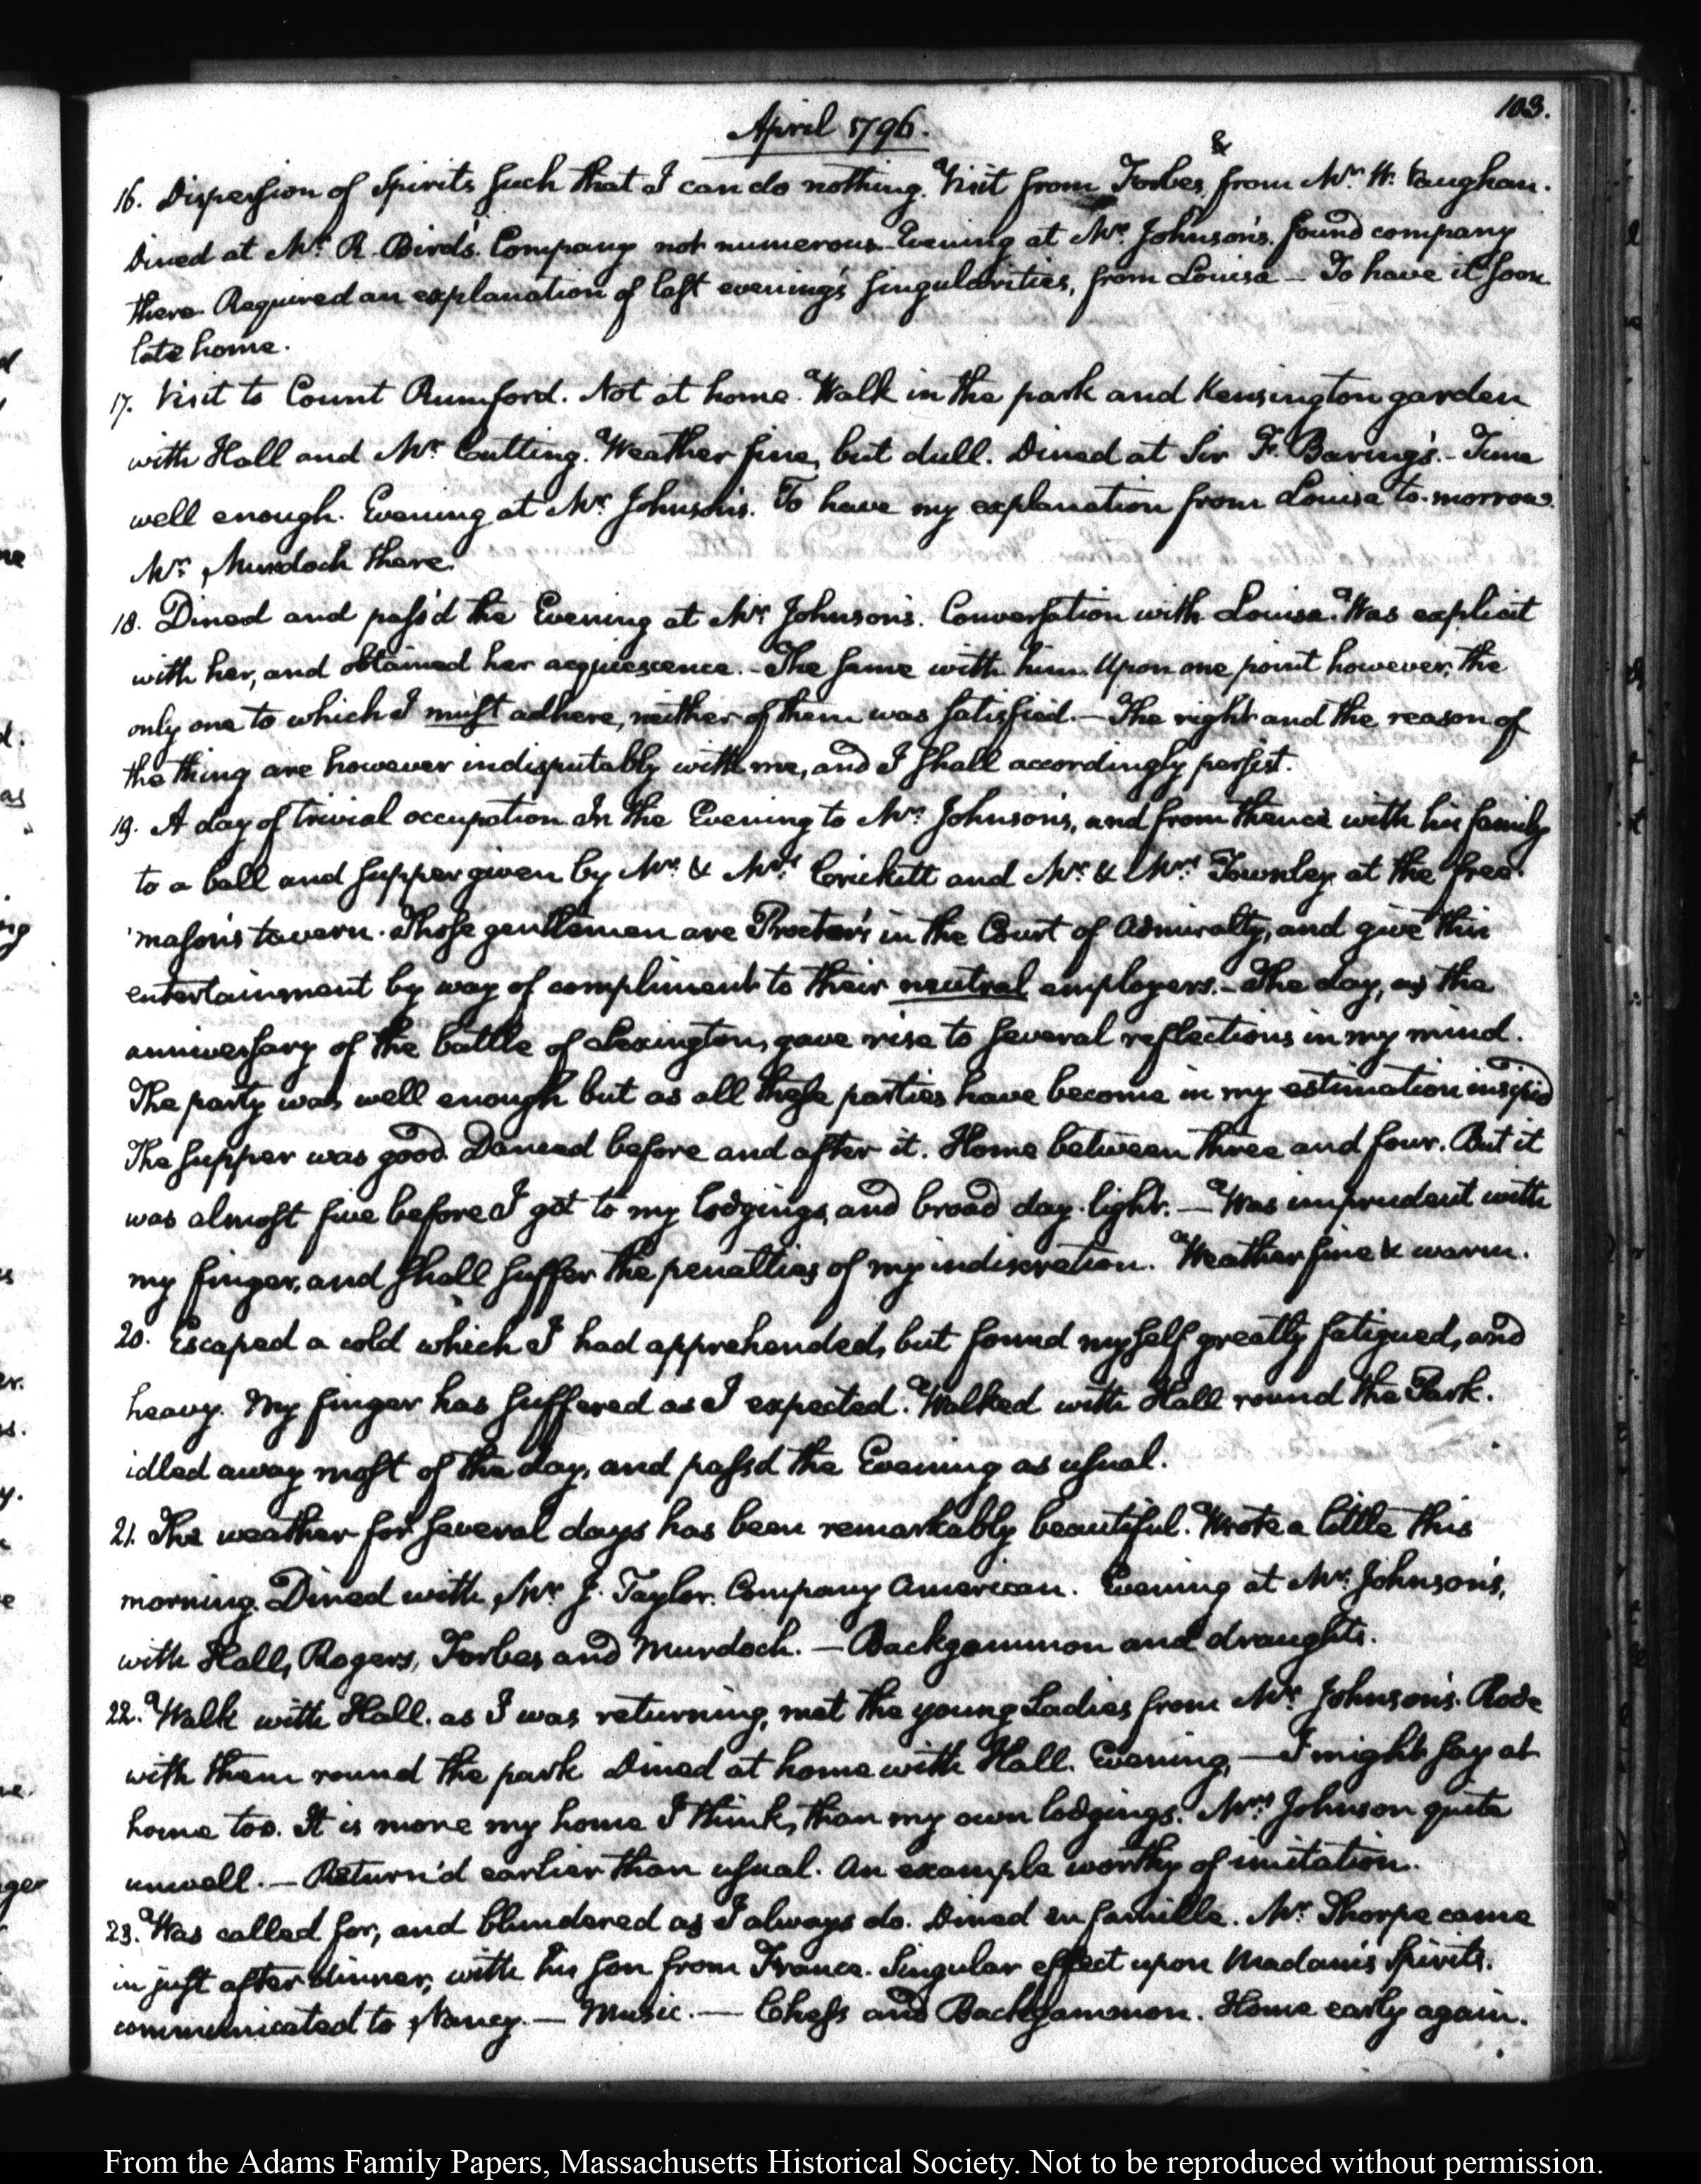 103.
April 1796.
16. Dispersion of Spirits such that I can do nothing. Visit from Forbes, & from Mr. W. Vaughan.
Dined at Mr. R. Bird's. Company not numerous. Evening at Mr. Johnson's. found company
there. Required an explanation of last evening's singularities, from Louisa — To have it soon
late home.
17. Visit to Count Rumford. Not at home. Walk in the park and Kensington garden
with Hall and Mr. Cutting. Weather fine, but dull. Dined at Sir F. Baring's. — Time
well enough. Evening at Mr. Johnson's. To have my explanation from Louisa to-morrow.
Mr. Murdoch there.
18. Dined and pass'd the Evening at Mr. Johnson's. Conversation with Louisa. Was explicit
with her, and obtained her acquiescence. — The same with him. Upon one point however, the
only one to which I must adhere, neither of them was satisfied. — The right and the reason of
the thing are however indisputably with me, and I shall accordingly persist.
19. A day of trivial occupation. In the Evening to Mr. Johnson's, and from thence with his family
to a ball and supper given by Mr. & Mrs. Crickitt and Mr. & Mrs. Townley at the free-
mason's tavern. Those gentlemen are Proctor's in the Court of Admiralty, and give this
entertainment by way of compliment to their neutral employers. — The day, as the
anniversary of the battle of Lexington, gave rise to several reflections in my mind.
The party was well enough but as all these parties have become in my estimation insipid
The supper was good. Danced before and after it. Home between three and four. But it
was almost five before I got to my lodgings, and broad day-light. — Was imprudent with
my finger, and shall suffer the penalties of my indiscretion. Weather fine & warm.
20. Escaped a cold which I had apprehended, but found myself greatly fatigued, and
heavy. My finger has suffered as I expected. Walked with Hall round the Park.
idled away most of the day, and pass'd the Evening as usual.
21. The weather for several days has been remarkably beautiful. Wrote a little this
morning. Dined with Mr. J. Taylor. Company American. Evening at Mr. Johnson's,
with Hall, Rogers, Forbes and Murdoch. — Backgammon and draughts.
22. Walk with Hall. as I was returning, met the young Ladies from Mr. Johnson's. Rode
with them round the park. Dined at home with Hall. Evening, — I might say at
home too. It is more my home I think, than my own lodgings. Mrs. Johnson quite
unwell. — Return'd earlier than usual. An example worthy of imitation.
23. Was called for, and blundered as I always do. Dined en famille. Mr. Thorpe came
in just after dinner, with his son from France. Singular effect upon Madam's Spirits.
communicated to Nancy. — Music. — Chess and Backgammon. Home early again.
From the Adams Family Papers, Massachusetts Historical Society. Not to be reproduced without permission.